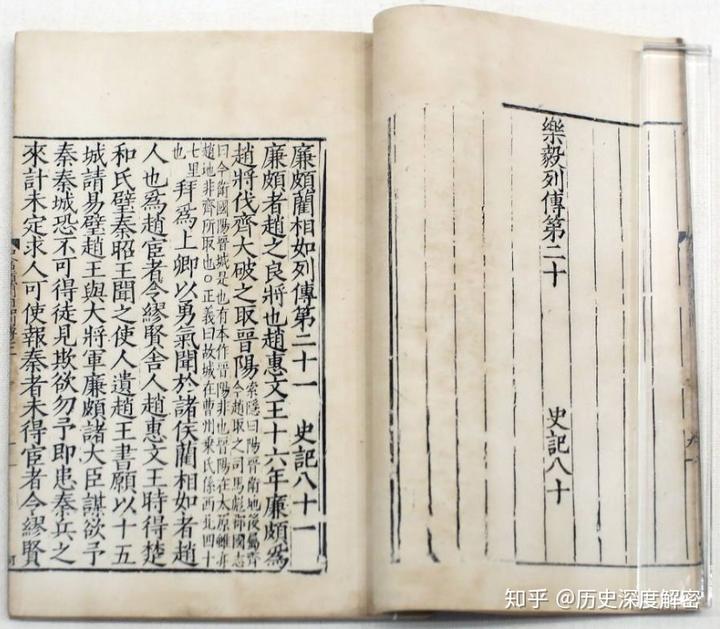 樂毅列傳第二十 史記八十
廉頗藺相如列傳第二十一 史記八十一
廉頗者趙之良將也趙惠文王十六年廉頗爲
趙將伐齊大破之取晉陽
索隱曰陽晉衞地後屬齊
今趙取之司馬彪郡國志
曰今衛國陽晉城是也有本作晉陽非也晉陽在太原雖亦
趙地非齊所取也○正義曰故城在曹州乗氏縣西北四十
七里
也
拜爲上卿以勇氣聞於諸侯藺相如者趙
人也爲趙宦者令繆賢舍人趙惠文王時得楚
和氏璧秦昭王聞之使人遺趙王書願以十五
城請易璧趙王與大將軍廉頗諸大臣謀欲予
秦秦城恐不可得徒見欺欲勿予即患秦兵之
來計未定求人可使報秦者未得宦者令繆賢
知乎 @历史深度解密